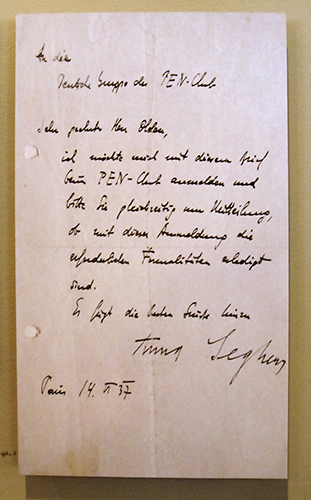 An die
Deutsche Gruppe des PEN-Club
Sehr geehrter Herr Olden,
ich möchte mich mit diesem Brief
beim PEN-Club anmelden und
bitte Sie gleichzeitig um Mitteilung,
ob mit dieser Anmeldung die
erforderlichen Formalitäten erledigt
sind.
Es fügt die besten Grüsse hinzu
Anna Seghers
Paris 14. II 37